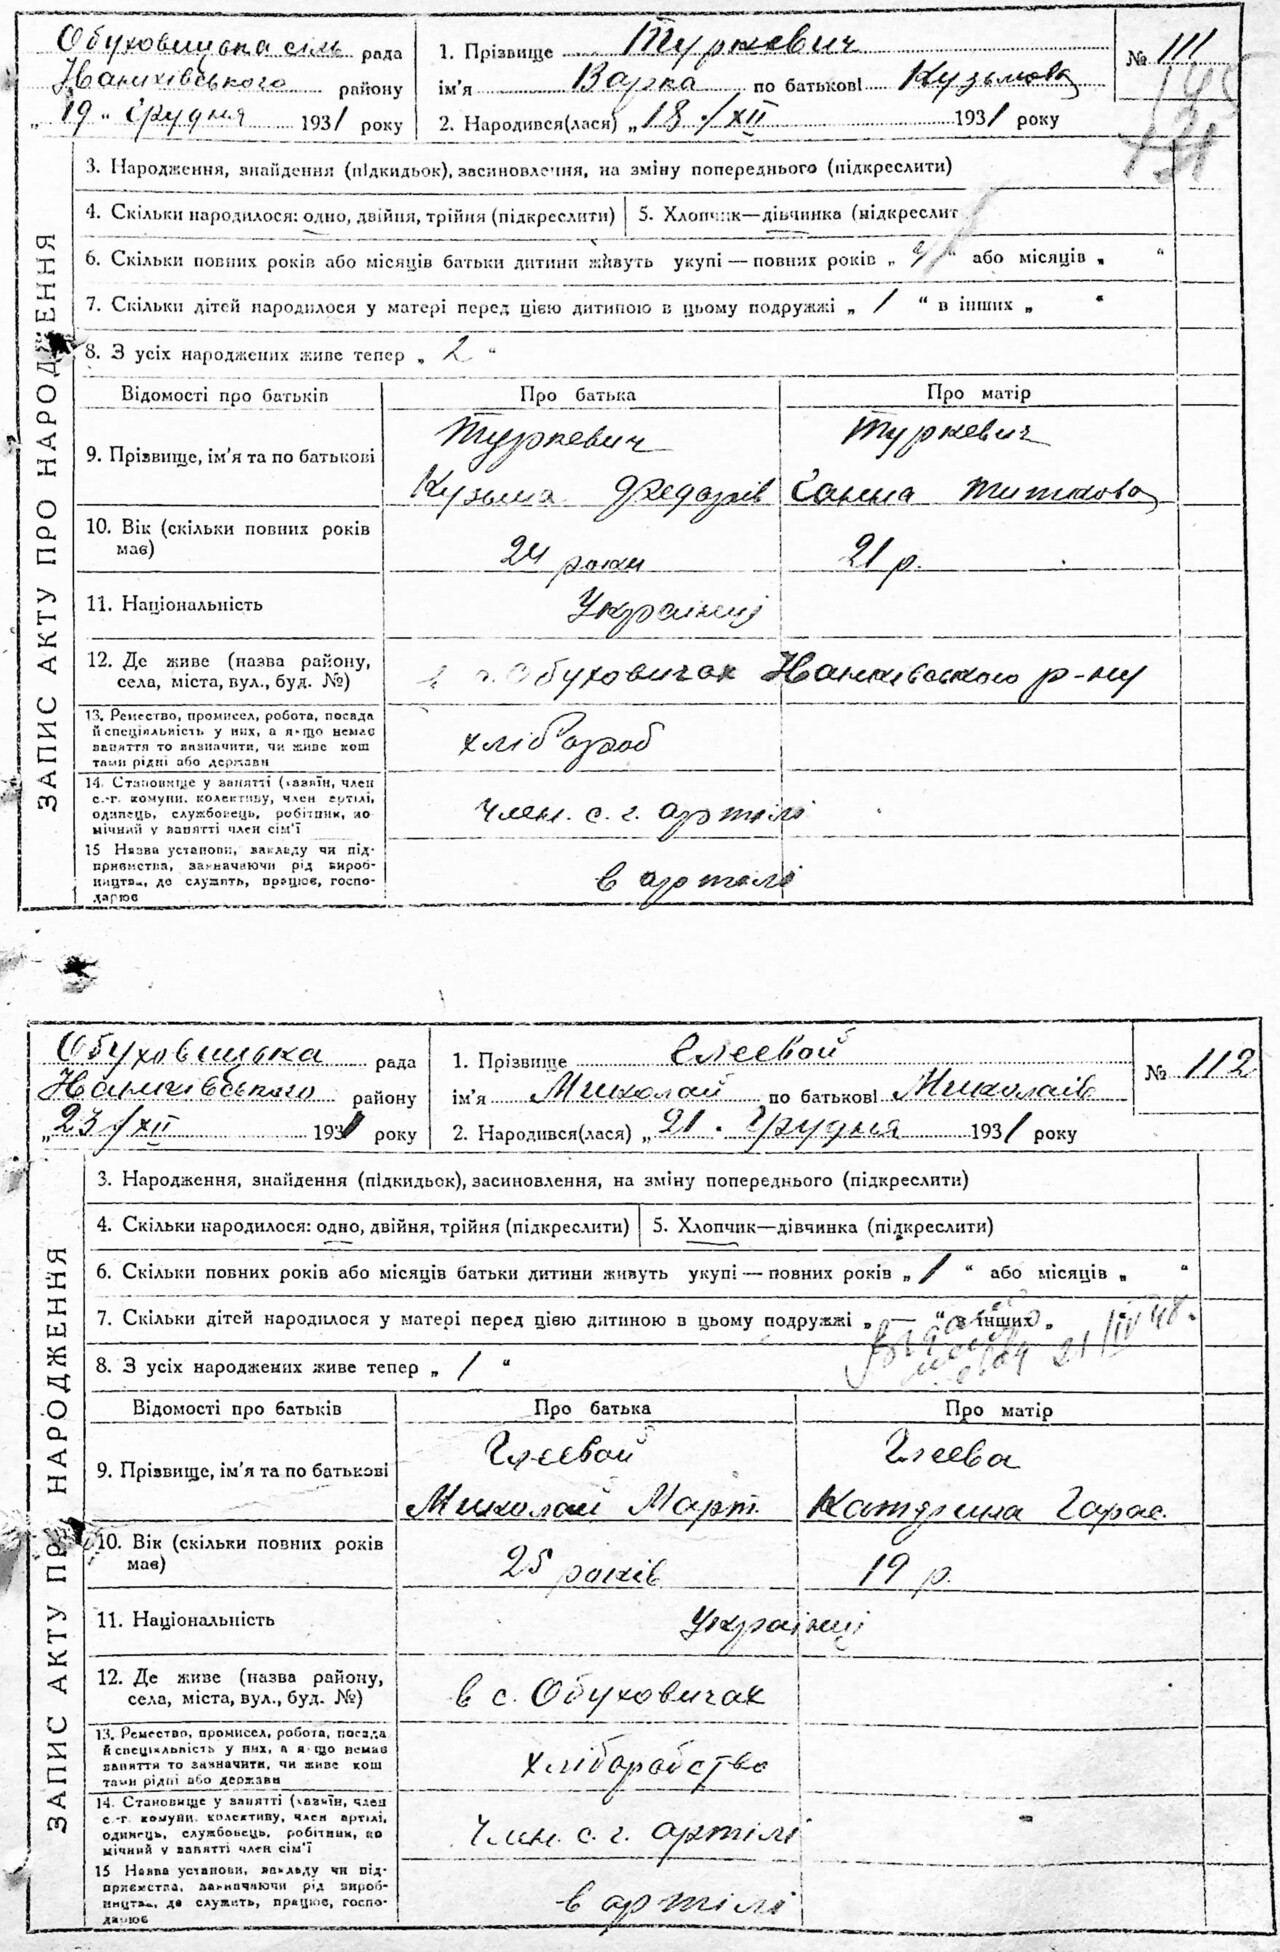 Обуховицька сіль рада
Іванківського району
„19“ Грудня 1931 року
1. Прізвище Туркевич
ім'я Варка по батькові Кузьмова
2. Народився(лася) „18/XII 1931 року
№ 111
3. Народження, знайдення (підкидьок), засиновлення, на зміну попереднього (підкреслити)
4. Скільки народилося: одно, двійня, трійня (підкреслити) 5. Хлопчик—дівчинка (підкреслит
6. Скільки повних років або місяців батьки дитини живуть укупі — повних років „ “ або місяців „ “
7. Скільки дітей народилося у матері перед цією дитиною в цьому подружжі „ 1 “ в інших „ “
8. З усіх народжених живе тепер „ 2 “
ЗАПИС АКТУ ПРО НАРОДЖЕННЯ
Відомості про батьків Про батька Про матір
9. Прізвище, ім'я та по батькові
Туркевич Туркевич
Кузьма Федорів Ганна Титкова
10. Вік (скільки повних років
має)
24 роки 21 р.
11. Національність Українці
12. Де живе (назва району,
села, міста, вул., буд. №)
в с. Обуховичах Іванківського р-ну
13. Ремество, промисел, робота, посада
й спеціяльність у них, а якщо немає
заняття то зазначити, чи живе кош
тами рідні або держави
хлібороб
14. Становище у занятті (хазяїн, член
с.-г. комуни, колективу, член артілі,
одинець, службовець, робітник, по
мічний у занятті член сім'ї
член. с. г. артілі
15 Назва установи, закладу чи під-
приємства, зазначаючи рід вироб-
ництва, де служить, працює, госпо-
дарює
в артілі
Обуховицька рада
Іванківського району
„23/XII 1931 року
1. Прізвище Глєєвой
ім'я Миколай по батькові Миколаїв
2. Народився(лася) „21. Грудня 1931 року
№ 112
3. Народження, знайдення (підкидьок), засиновлення, на зміну попереднього (підкреслити)
4. Скільки народилося: одно, двійня, трійня (підкреслити) 5. Хлопчик—дівчинка (підкреслити)
6. Скільки повних років або місяців батьки дитини живуть укупі — повних років „ 1 “ або місяців „ “
7. Скільки дітей народилося у матері перед цією дитиною в цьому подружжі „ — “ в інших „
21/IV 48.
8. З усіх народжених живе тепер „ 1 “
ЗАПИС АКТУ ПРО НАРОДЖЕННЯ
Відомості про батьків Про батька Про матір
9. Прізвище, ім'я та по батькові
Глєєвой Глєєва
Миколай Март. Катерина Гарас.
10. Вік (скільки повних років
має)
25 років 19 р.
11. Національність Українці
12. Де живе (назва району,
села, міста, вул., буд. №)
в с. Обуховичах
13. Ремество, промисел, робота, посада
й спеціяльність у них, а якщо немає
заняття то зазначити, чи живе кош
тами рідні або держави
хліборобство
14. Становище у занятті (хазяїн, член
с.-г. комуни, колективу, член артілі,
одинець, службовець, робітник, по
мічний у занятті член сім'ї
член. с. г. артілі
15 Назва установи, закладу чи під-
приємства, зазначаючи рід вироб-
ництва, де служить, працює, госпо-
дарює
в артілі